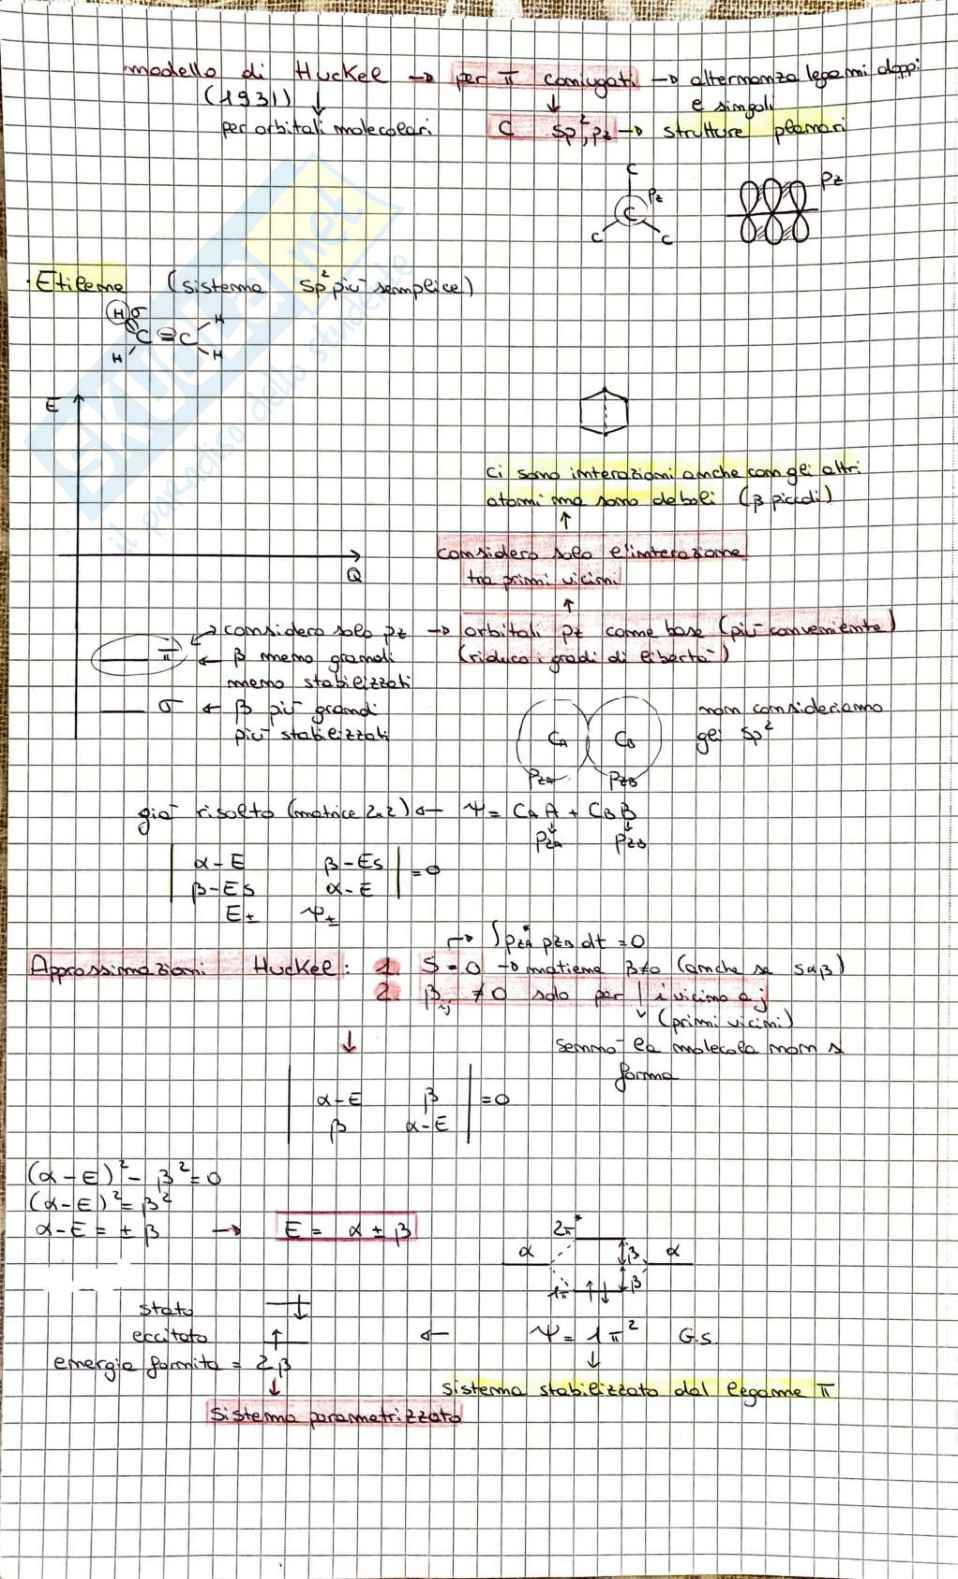 modello di Huckel → per π coniugati → alternanza legami doppi
(1931) ↓ ↓ e singoli
per orbitali molecolari C sp², pz → strutture planari
C
Pz Pz
C
C C
· Etilene (sistema sp² più semplice)
H σ H
C = C
H H
E
Ci sono interazioni anche con gli altri
atomi ma sono deboli (β piccoli)
↑
considero solo l'interazione
Q tra primi vicini
↑
→ considero solo pz → orbitali pz come base (più conveniente)
π ← β meno grandi (riduco i gradi di libertà)
meno stabilizzati
σ ← β più grandi non consideriamo
più stabilizzati CA CB gli sp²
PzA PzB
già risolto (matrice 2x2) ← Ψ = CA A + CB B
↓ ↓
PzA PzB
| α-E β-ES | = 0
| β-ES α-E |
E± Ψ±
→ ∫ pzA* pzB dt = 0
Approssimazioni Huckel: 1. S = 0 → mantiene β≠0 (anche se S α β)
2. βij ≠ 0 solo per i vicino a j
↓ (primi vicini)
↓ sennò la molecola non si
forma
| α-E β | = 0
| β α-E |
(α-E)² - β² = 0
(α-E)² = β²
α-E = ± β → E = α ± β
2π*
α β α
β
1π ↑↓
stato ↓
eccitato ↑ ← Ψ = 1π² G.s.
energia fornita = 2β ↓
↓ sistema stabilizzato dal legame π
sistema parametrizzato
skuola.net
il paradiso dello studente